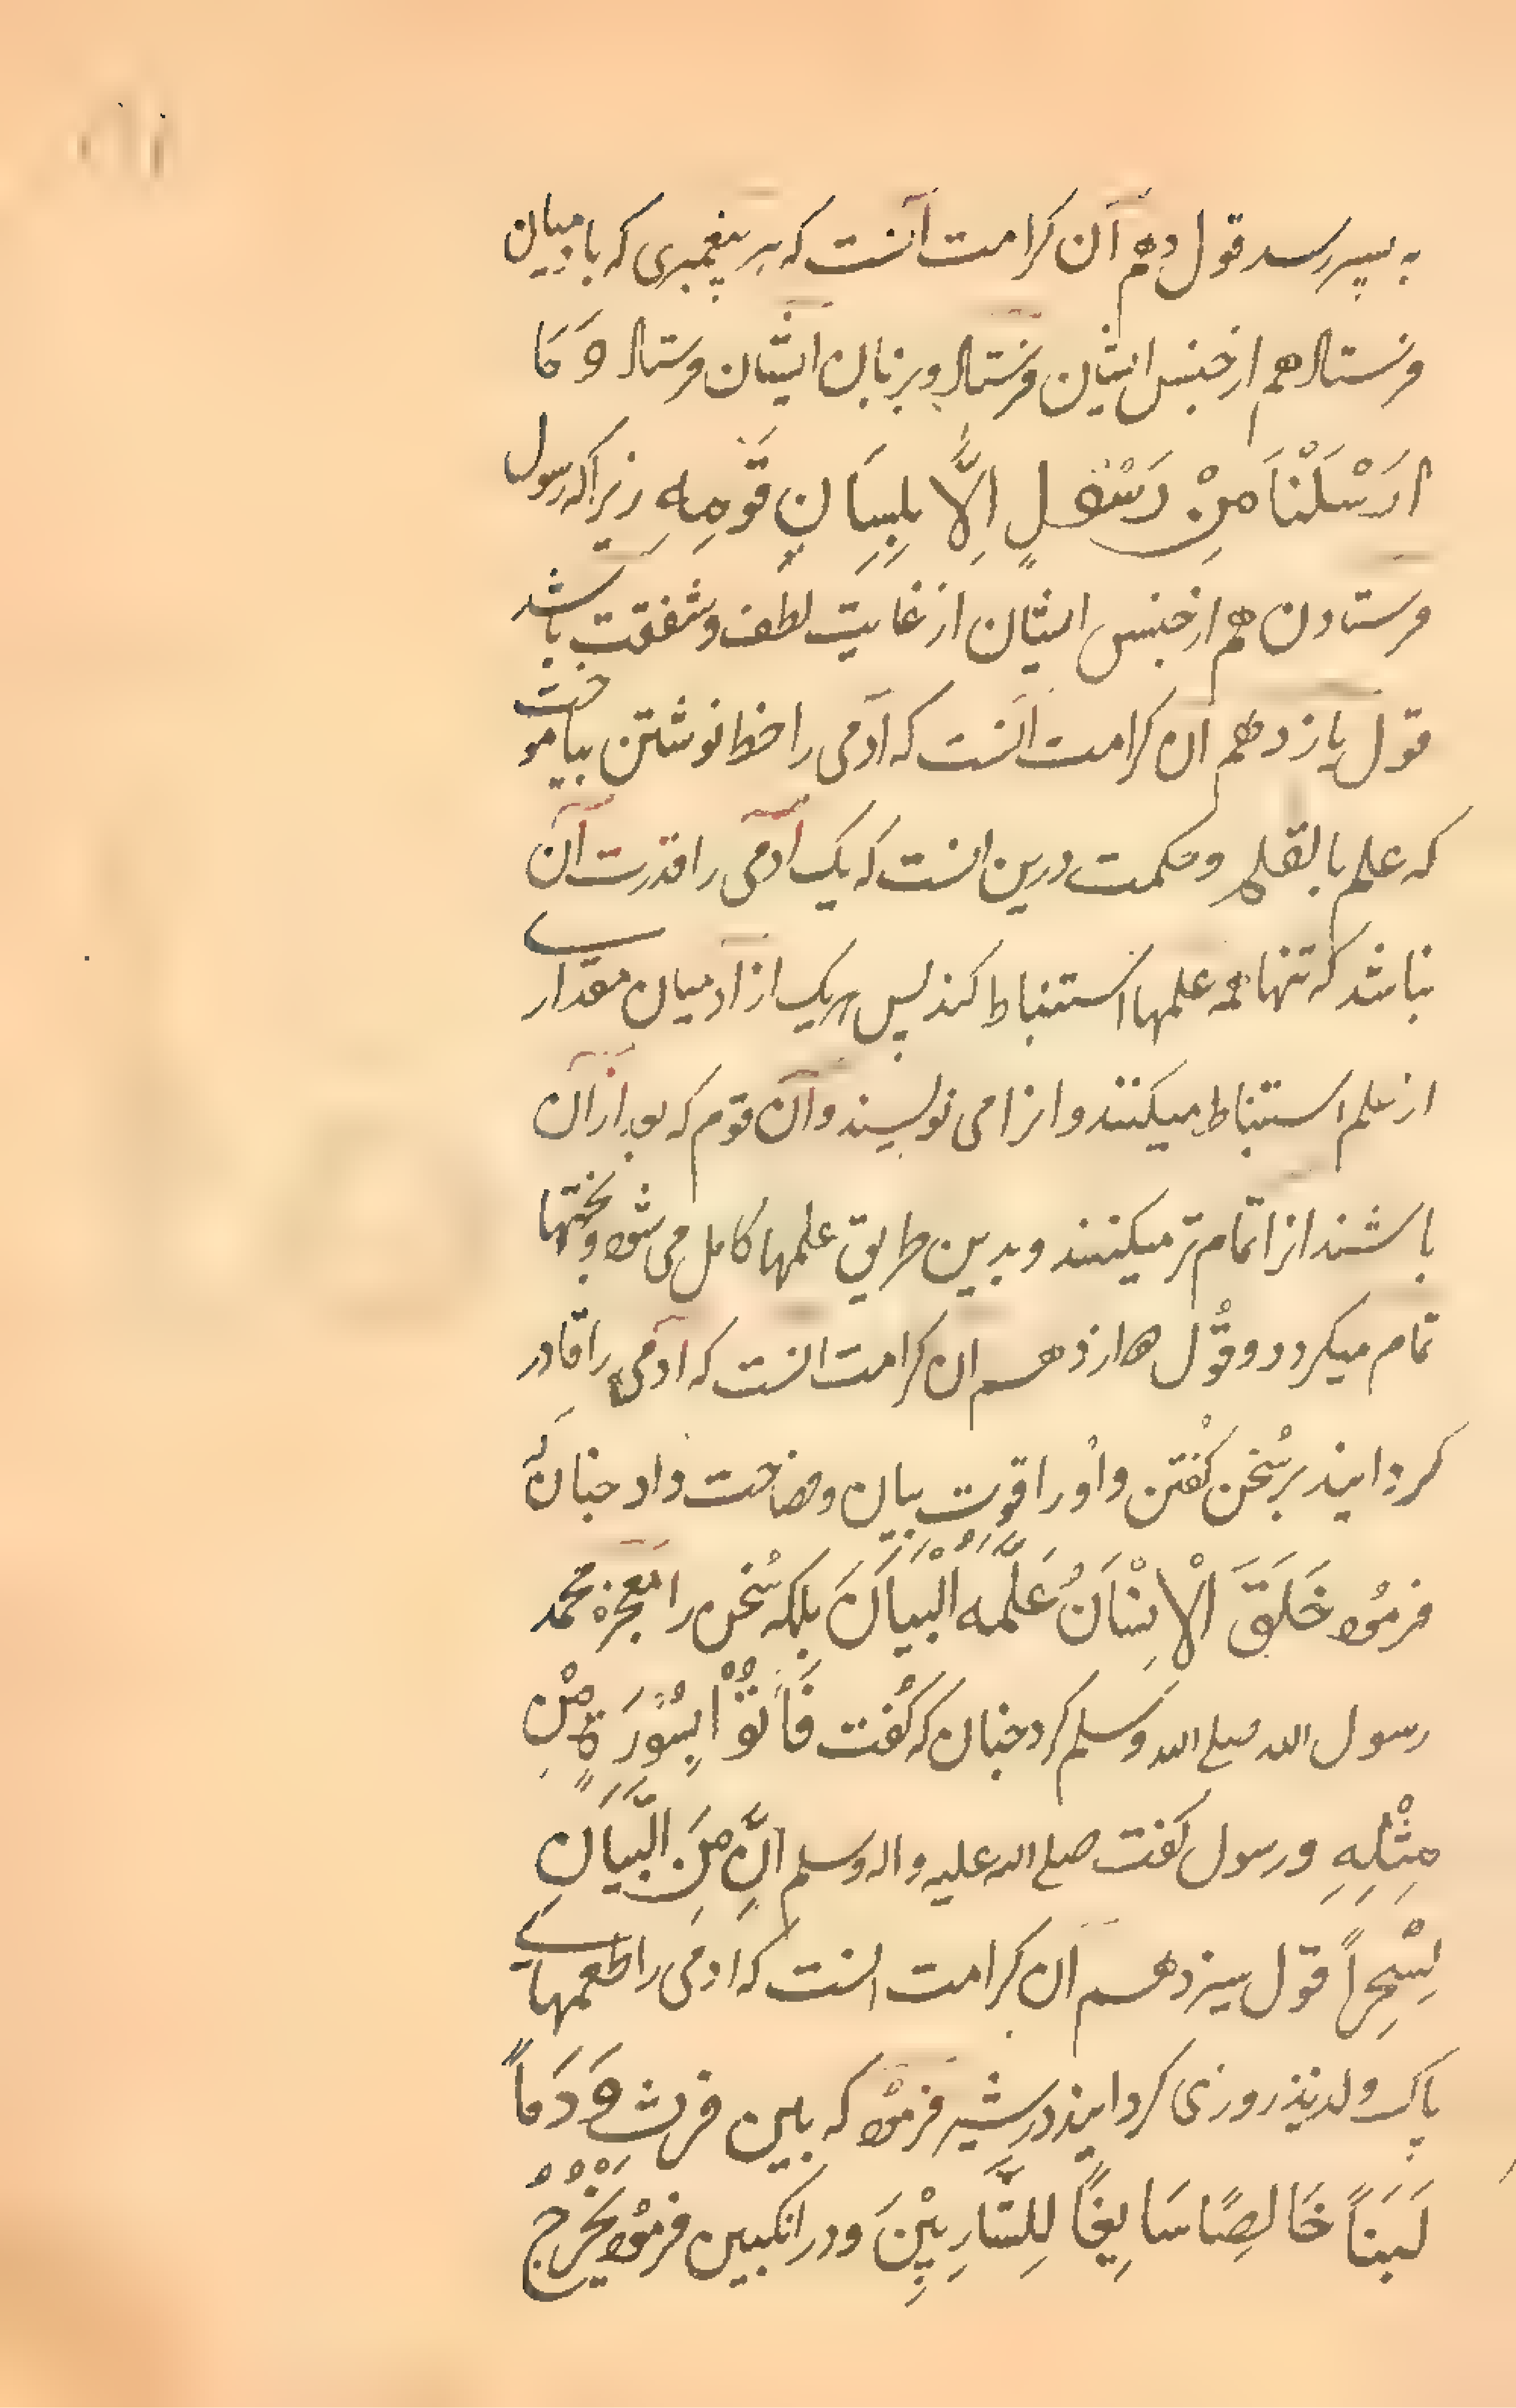 به پسر رسد قول دهم آن کرامت آنست که هر پیغمبری که بادمیان
فرستاد هم از جنس ایشان فرستاد و بر زبان ایشان فرستاد وَ مَا
اَرَسْلَنْاَ مِنْ رَسْوُلٍ اِلَّا بِلِسَانِ قَوْمِهِ زیرا که رسول
فرستادن هم از جنس ایشان از غایت لطف و شفقت باشد
قول یازدهم ان کرامت آنست که آدمی را خط نوشتن بیاموخت
که علم بالقلم و حکمت درین انست که یک آدمی را قدرت آن
نباشد که تنها همه علمها استنباط کند پس هریک از آدمیان مقداری
از علم استنباط میکنند و انرا می نویسند و آن قوم که بعد از آن
باشند انرا تمام تر میکنند و بدین طریق علمها کامل می شود و بختها
تمام میکردد و قول دوازدهم ان کرامت انست که آدمی را قادر
کردانید بر سُخن کُفتن و اُورا قوت بیان و فصاحت داد چنان که
فرمُود خَلَقَ الْاِنْسَانَ عَلَّمَهُ الْبَیَانَ بلکه سُخن را معجزه محمد
رسول الله صلی الله وسلم کرد چنان که کُفت فَأتُوْا بِسُوْرَةٍ مِنْ
مِثْلِهِ و رسول کفت صلی الله علیه واله وسلم اِنَّ مِنَ الْبَیَانِ
لَسِحْراً قول سیزدهم ان کرامت انست که ادمی را طعمهای
پاک و لذیذ روزی کردانید در شیر فرمُود که بین فرث وَ دَماً
لَبَنَاً خَالِصًا سَایِغًا لِلشَّارِبِیْنَ و در انکبین فرمُود یَخْرُجُ